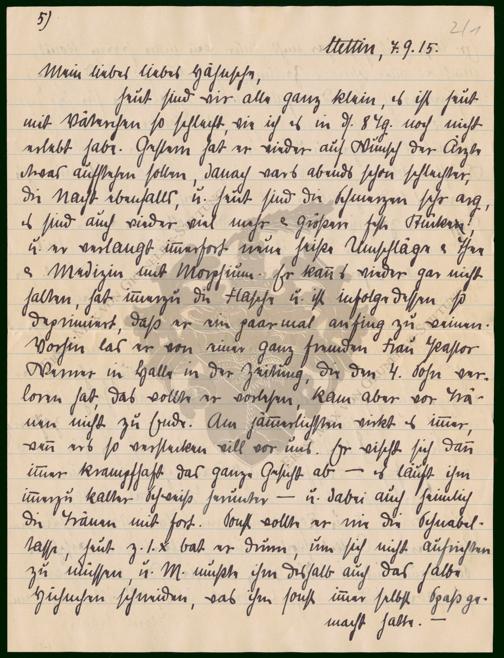 5)
2/1
Stettin, 7.9.15.
Mein liebes liebes Hähnsche,
Heut sind wir alle ganz klein, es ist heut
mit Väterchen so schlecht, wie ich es in d. 8 Tg. noch nicht
erlebt habe. Gestern hat er wieder auf Wunsch der Ärzte
etwas aufstehen sollen, danach wars abends schon schlechter,
die Nacht ebenfalls, u. heut sind die Schmerzen sehr arg,
es sind auch wieder viel mehr & größere feste Stücken,
u. er verlangt immerfort neue heiße Umschläge & Thee
& Medizin mit Morphium. Er kann's wieder gar nicht
halten, hat immerzu die Flasche u. ist infolgedessen so
deprimiert, daß er ein paar mal anfing zu weinen.
Vorhin las er von einer ganz fremden Frau Pastor
Werner in Halle in der Zeitung, die den 4. Sohn ver-
loren hat, das wollte er vorlesen, kam aber vor Trä-
nen nicht zu Ende. Am jämmerlichsten wirkt es immer,
wenn ers so verstecken will vor uns. Er wischt sich dann
immer krampfhaft das ganze Gesicht ab — es läuft ihm
immerzu kalter Schweiß herunter — u. dabei auch heimlich
die Tränen mit fort. Sonst wollte er nie die Schnabel-
tasse, heut z. 1. x bat er drum, um sich nicht aufrichten
zu müssen, u. M. mußte ihm deshalb auch das halbe
Hühnchen schneiden, was ihm sonst immer selbst Spaß ge-
macht hatte. —